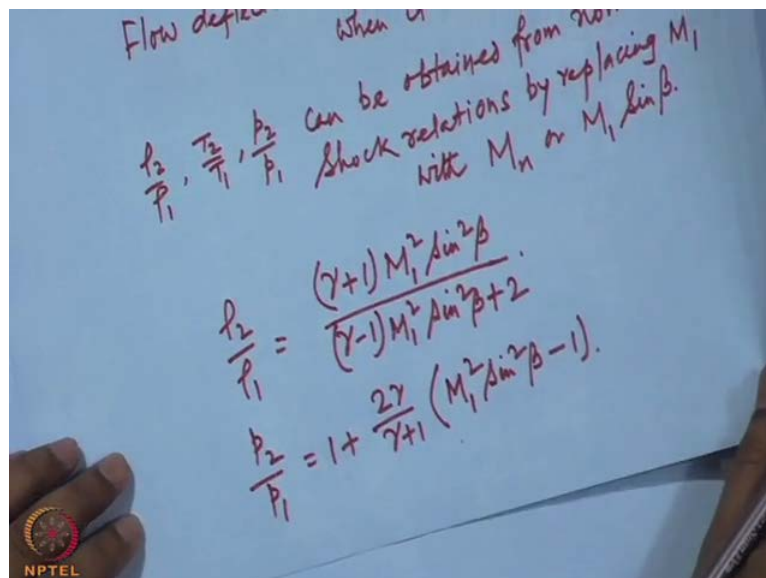 Flow deflec
when
ρ₂/ρ₁, T₂/T₁, p₂/p₁ can be obtained from nor
shock relations by replacing M₁
with Mₙ or M₁ sinβ.
ρ₂/ρ₁ = (γ+1)M₁² sin²β / (γ-1)M₁² sin²β+2.
p₂/p₁ = 1 + 2γ/γ+1 (M₁² sin²β - 1).
NPTEL